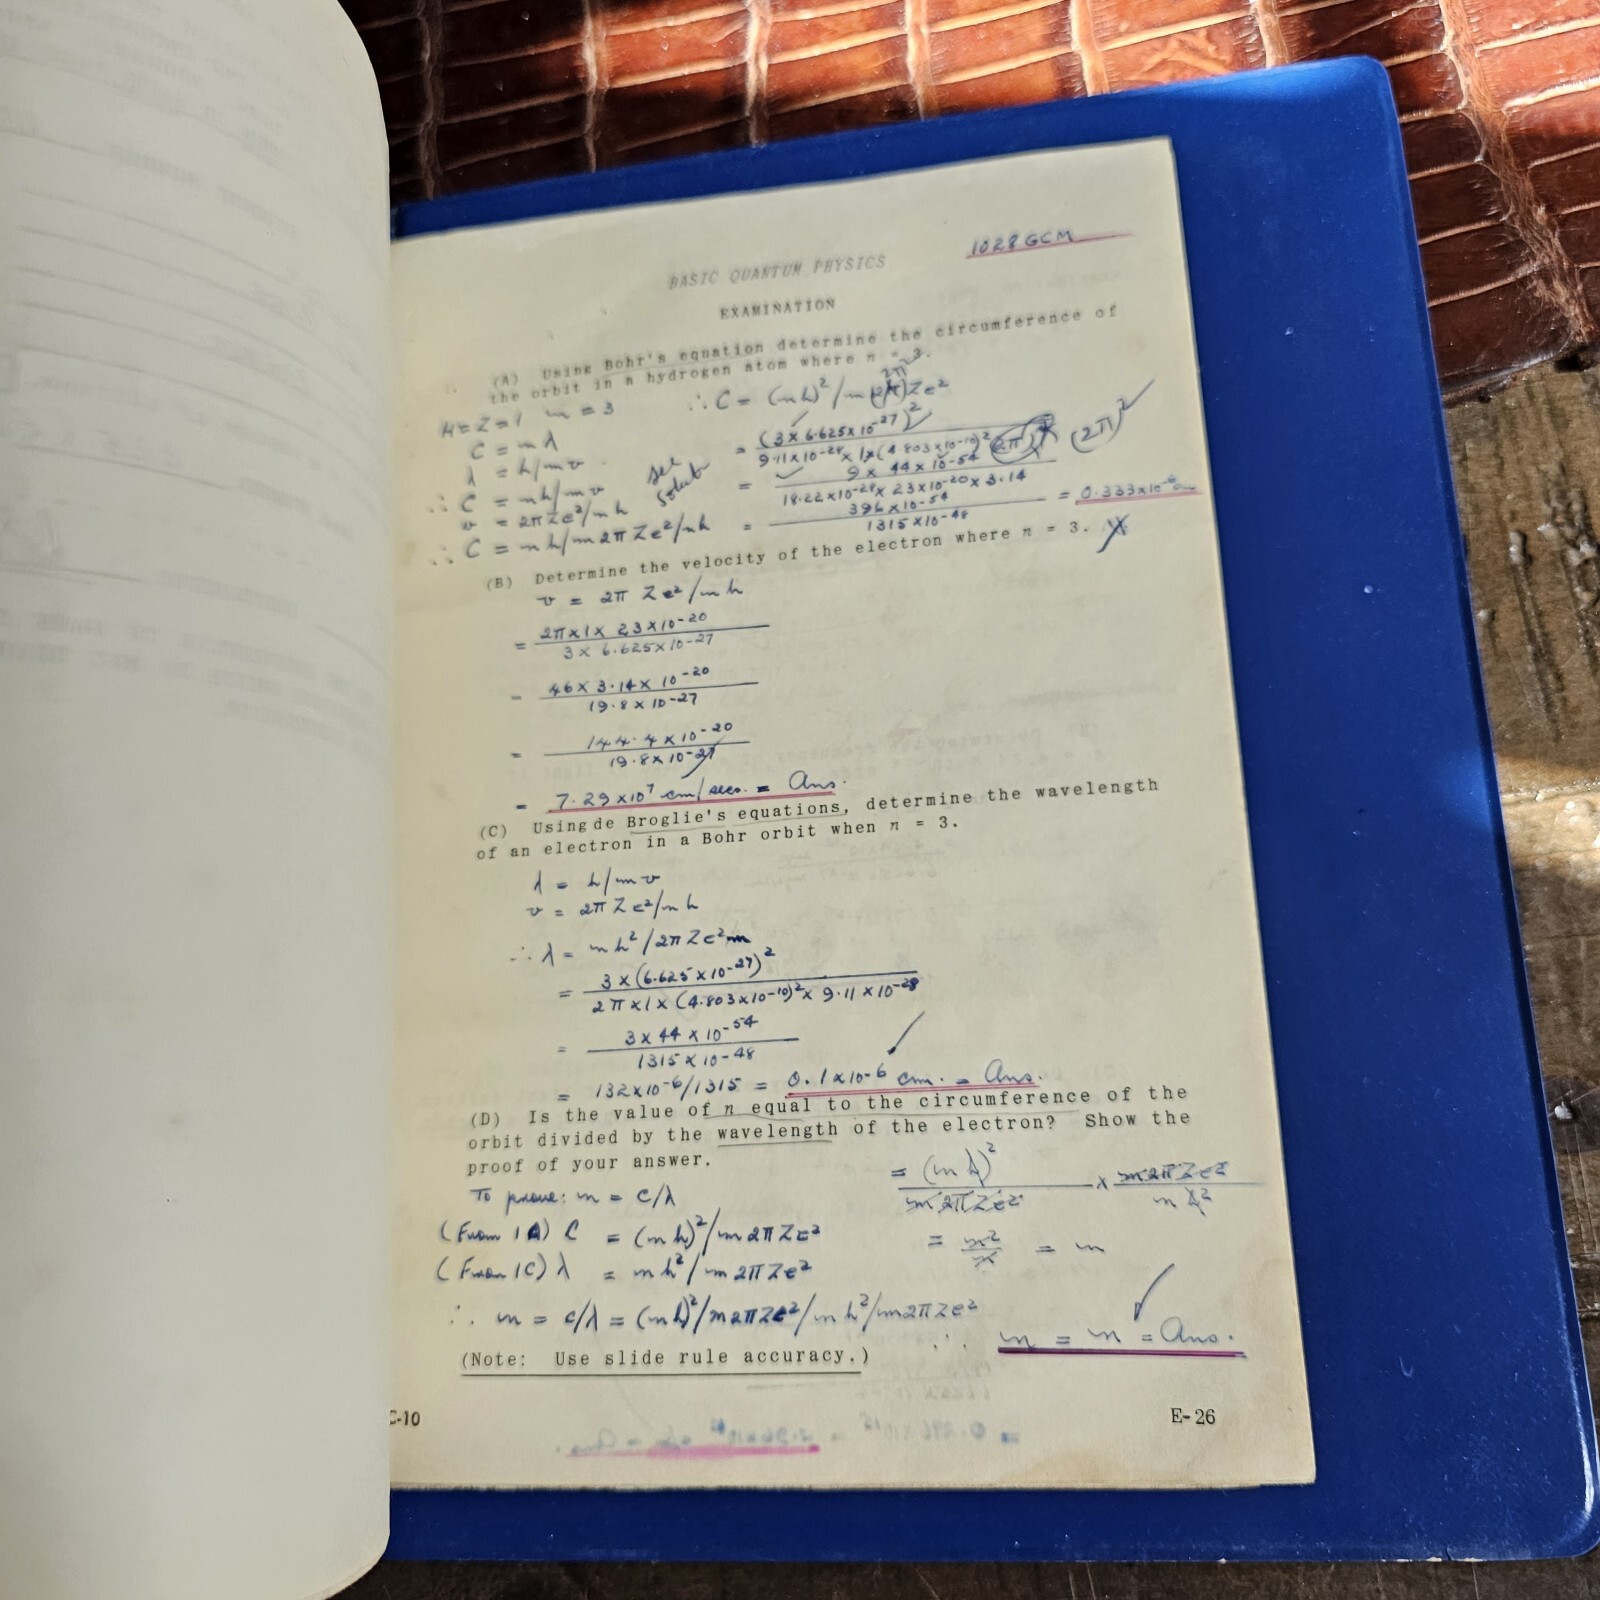 1028 GCM
BASIC QUANTUM PHYSICS
EXAMINATION
(A) Using Bohr's equation determine the circumference of
the orbit in a hydrogen atom where n = 3.
H = Z = 1 n = 3
C = nλ
λ = h/mv
∴ C = nh/mv
v = 2πZe²/nh
∴ C = nh/m2πZe²/nh
see
∴ C = (nh)²/m(2π)Ze²
2π
= (3 x 6.625 x 10⁻²⁷)²
9.11 x 10⁻²⁸ x 1 x (4.803 x 10⁻¹⁰)² (2π)
(2π)²
= 9 x 44 x 10⁻⁵⁴
18.22 x 10⁻²⁸ x 23 x 10⁻²⁰ x 3.14
= 396 x 10⁻⁵⁴
1315 x 10⁻⁴⁸
= 0.333 x 10⁻⁶ cm
(B) Determine the velocity of the electron where n = 3.
v = 2π Ze²/nh
= 2π x 1 x 23 x 10⁻²⁰
3 x 6.625 x 10⁻²⁷
= 46 x 3.14 x 10⁻²⁰
19.8 x 10⁻²⁷
= 144.4 x 10⁻²⁰
19.8 x 10⁻²⁷
= 7.29 x 10⁷ cm/sec. = Ans.
(C) Using de Broglie's equations, determine the wavelength
of an electron in a Bohr orbit when n = 3.
λ = h/mv
v = 2π Ze²/nh
∴ λ = nh²/2πZe²m
= 3 x (6.625 x 10⁻²⁷)²
2π x 1 x (4.803 x 10⁻¹⁰)² x 9.11 x 10⁻²⁸
= 3 x 44 x 10⁻⁵⁴
1315 x 10⁻⁴⁸
= 132 x 10⁻⁶/1315 = 0.1 x 10⁻⁶ cm. = Ans.
(D) Is the value of n equal to the circumference of the
orbit divided by the wavelength of the electron? Show the
proof of your answer.
To prove: n = c/λ
(From 1A) C = (nh)²/m2πZe²
(From 1C) λ = nh²/m2πZe²
∴ n = c/λ = (nh)²/m2πZe²/nh²/m2πZe²
= (nh)² x m2πZe²
m2πZe² nh²
= n² = n
n
∴ n = n = Ans.
(Note: Use slide rule accuracy.)
C-10
E-26